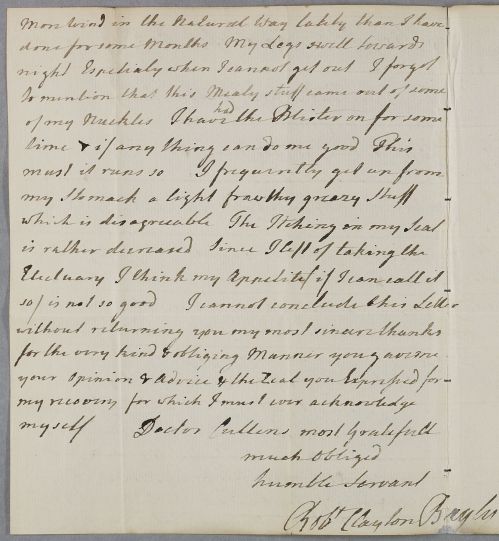 More Wind in the Natural Way lately than I have
done for some Months My Legs swell towards
night Especialy when I cannot get out I forgot
to mention that this Mealy stuff came out of some
of my Knuckles I have had the Blister on for some
time & if any thing can do me good This
must it runs so I frequently get up from
my Stomach a light frawthy greazy Stuff
which is disagreeable The Itching in my Seat
is rather decreased Since I left of taking the
Electuary I think my Appetite (if I can call it
so) is not so good I cannot conclude this Letter
without returning you my most sincere thanks
for the very kind & obliging Manner you gave me
your Opinion & Advice & the Zeal you Expressed for
my recovery for which I must ever acknowledge
myself Doctor Cullens most Gratefull
much Obliged
humble Servant
Robt Clayton